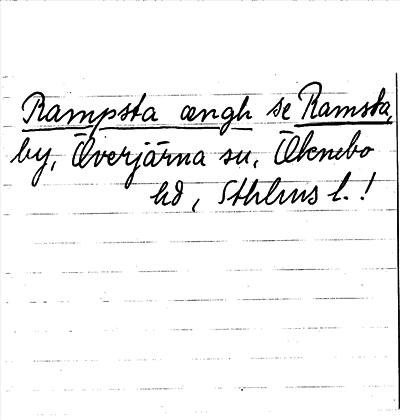 Rampsta ængh se Ramsta,
by, Överjärna sn, Öknebo
hd, Sthlms l.!